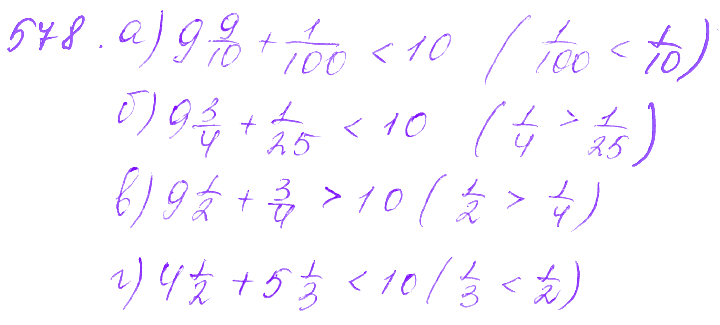 578. а) 9 9/10 + 1/100 < 10 (1/100 < 1/10)
б) 9 3/4 + 1/25 < 10 (1/4 > 1/25)
в) 9 1/2 + 3/4 > 10 (1/2 > 1/4)
г) 4 1/2 + 5 1/3 < 10 (1/3 < 1/2)